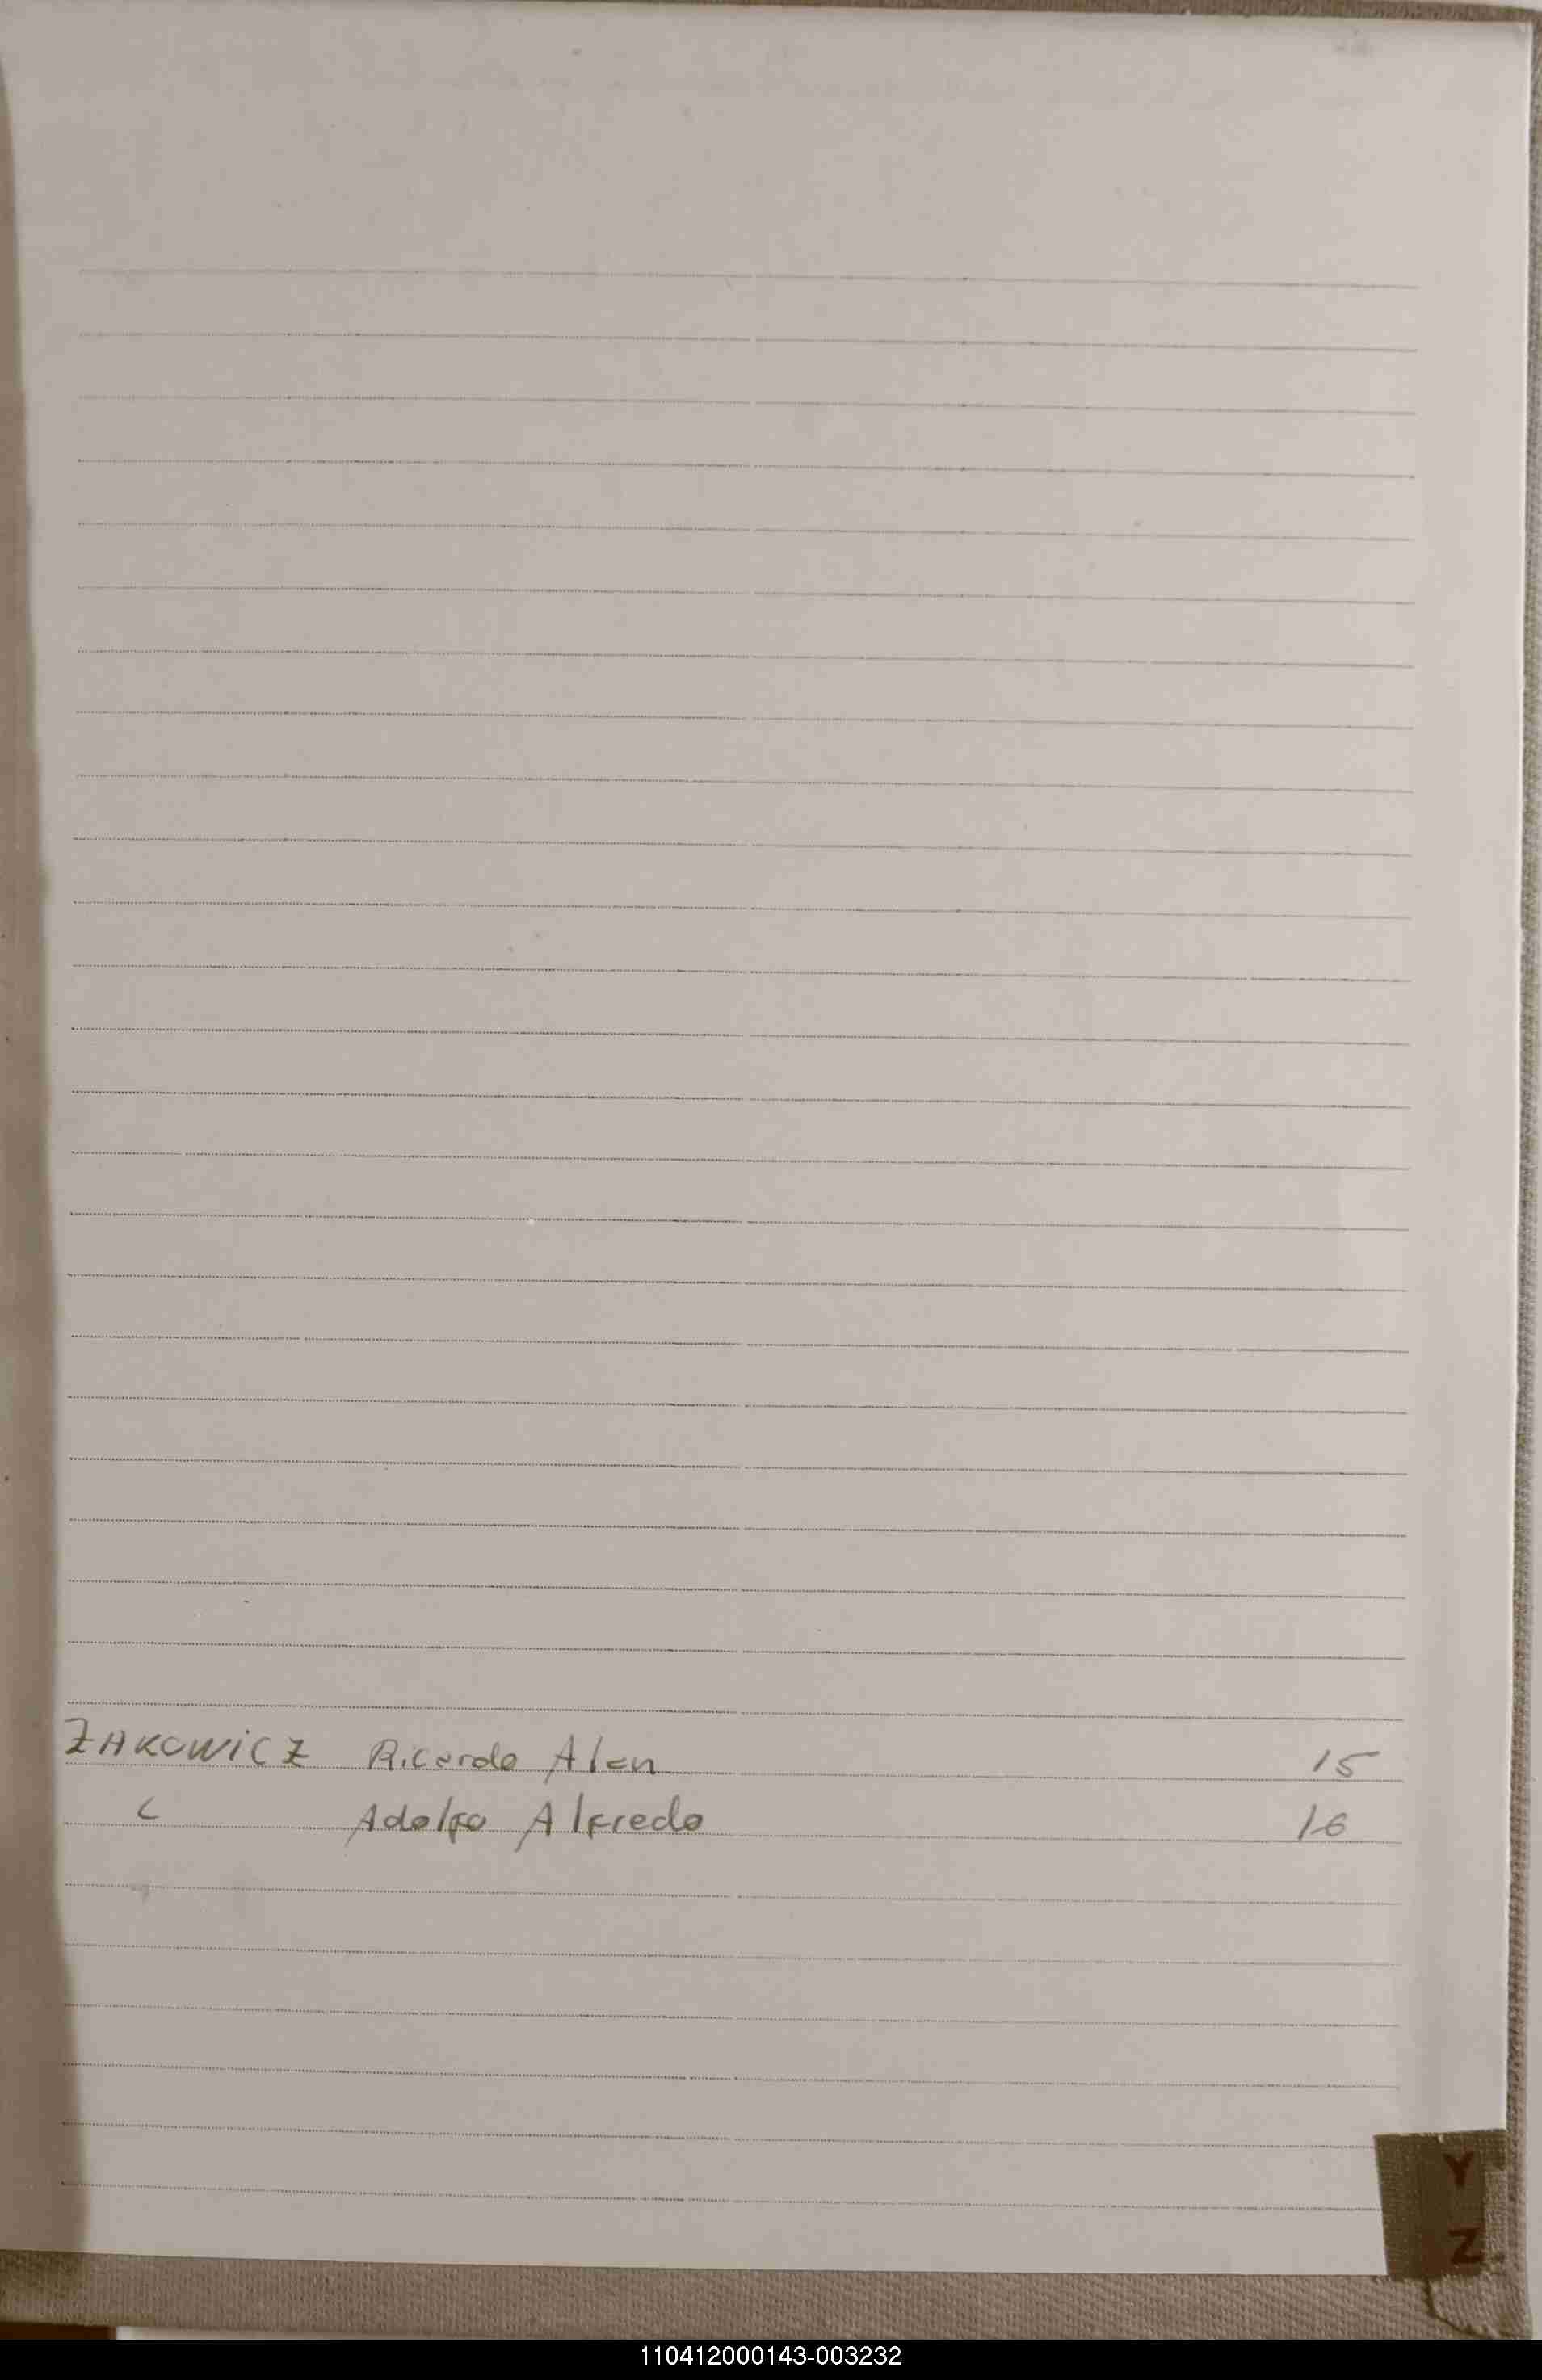 ZAKOWICZ Ricardo Alan 15
" Adolfo Alfredo 16
Y
Z
110412000143-003232